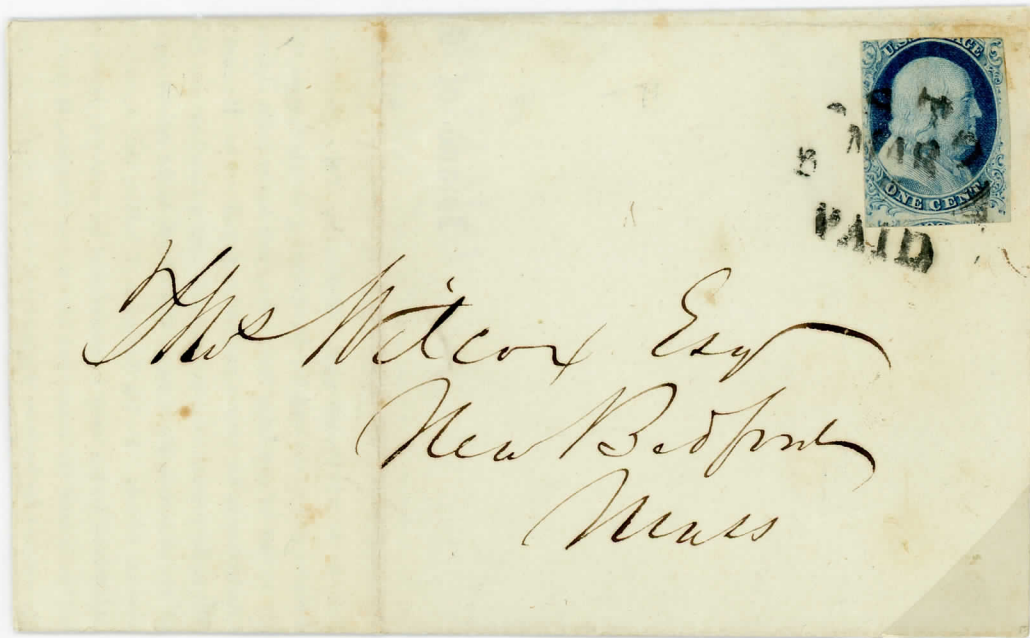 U.S.
MAR
ONE CENT
PAID
Thos Wilcox Esq
New Bedford
Mass